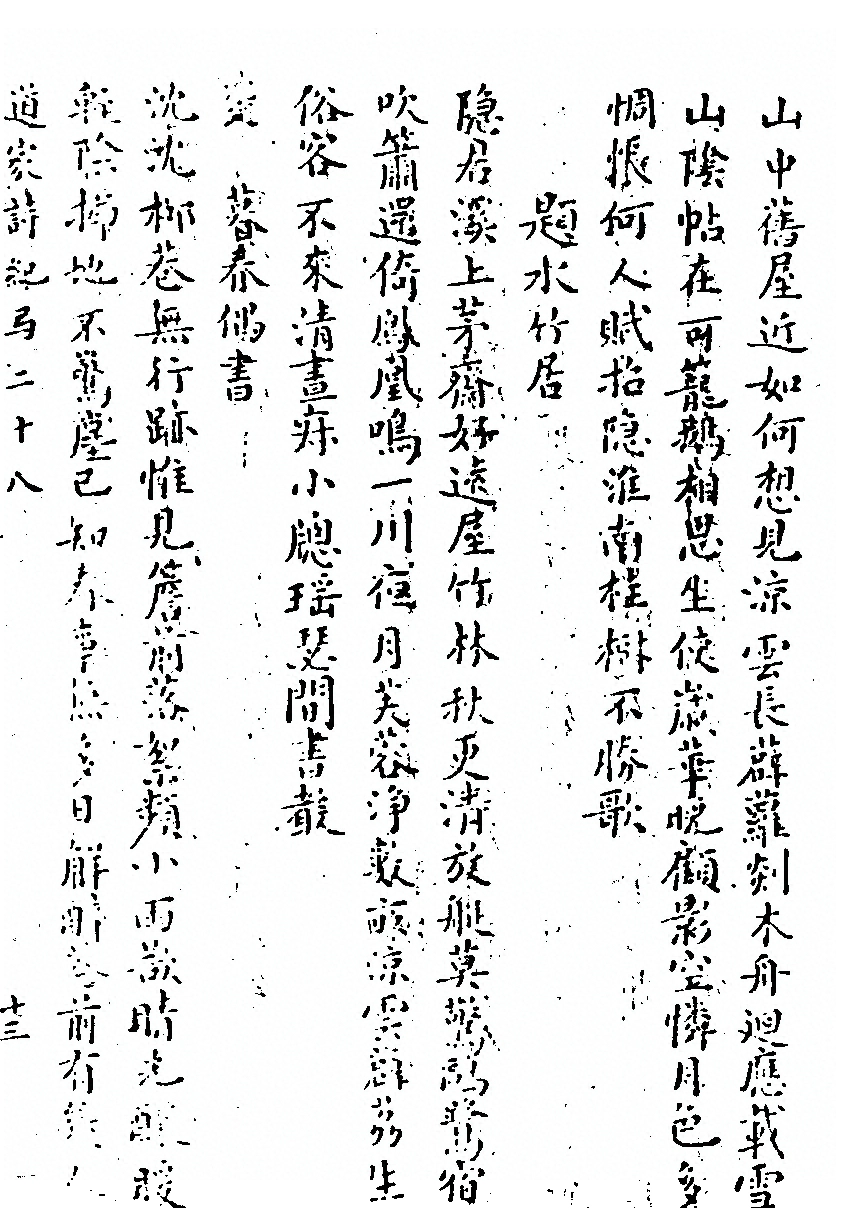 山中舊屋近如何想見涼雲長薜蘿剡木舟迴應載雪
山陰帖在可籠鵝相思坐使歲華晚顧影空憐月色多
惆悵何人賦招隱淮南桂樹不勝歌
題水竹居
隱居溪上茅齋好遶屋竹林秋更清放艇莫驚鷗鷺宿
吹簫還倚鳳凰鳴一川夜月芙蓉淨數畝涼雲薜荔生
俗客不來清晝寐小牕瑶瑟間書聲
暮春偶書
沈沈柳巷無行跡惟見簷前落絮頻小雨歇時先釀暖
輕陰掃地不驚塵已知春事無多日解醉前有幾人
道家詩紀弓二十八
十三